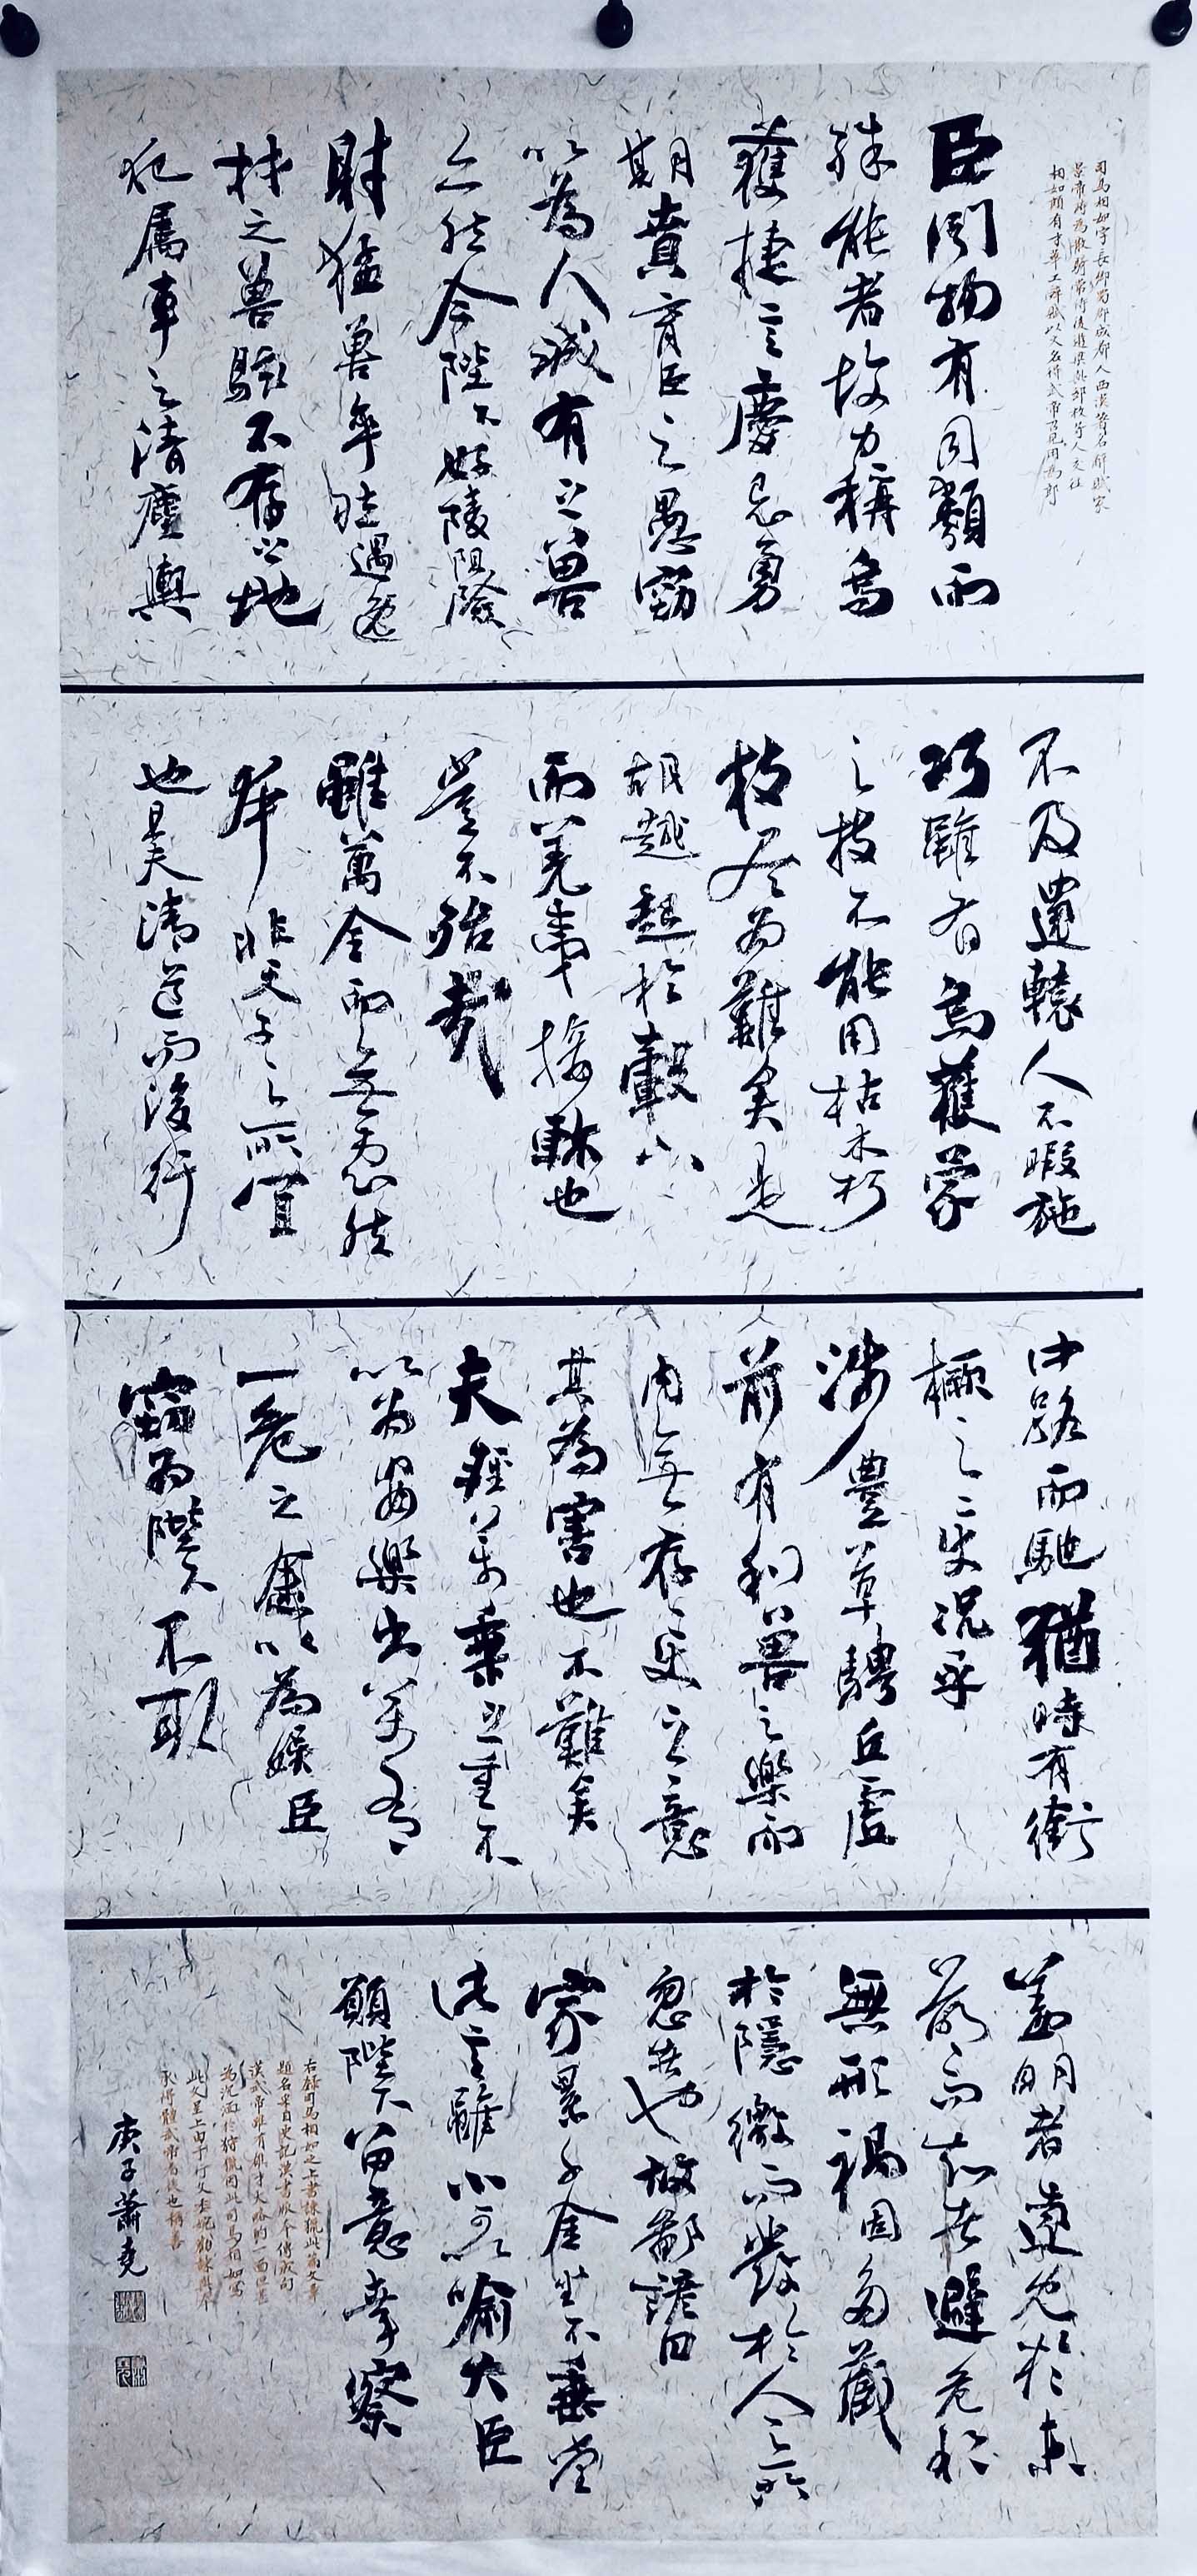 司馬相如字長卿蜀郡成都人西漢著名辭賦家
景帝時為散騎常侍後遊梁與鄒枚等人交往
相如頗有才華工辭賦以文名得武帝召見用為郎
臣聞物有同類而
殊能者故力稱烏
獲捷言慶忌勇
期賁育臣之愚竊
以為人誠有之獸
亦然今陛下好陵阻險
射猛獸卒然遇逸
材之獸駭不存之地
犯屬車之清塵輿
不及還轅人不暇施
巧雖有烏獲逢蒙
之技不能用枯木朽
枝盡為難矣是
胡越起於轂下
而羌夷接軫也
豈不殆哉
雖萬全而無患然
本非天子之所宜
也且夫清道而後行
中路而馳猶時有銜
橛之變況乎
涉豐草騁丘虛
前有利獸之樂而
內無存變之意
其為害也不難矣
夫輕萬乘之重不
以為安樂出萬有
一危之塗以為娛臣
竊為陛下不取
蓋明者遠見於未
萌而知者避危於
無形禍固多藏
於隱微而發於人之所
忽者也故鄙諺曰
家累千金坐不垂堂
此言雖小可以喻大臣
願陛下留意幸察
右錄司馬相如之上書諫獵此篇文章
題名來自史記漢書
漢武帝雖有雄才大略的一面但甚
為沉湎於狩獵因此司馬相如寫
此文呈上由于行文委婉勸諫與奉
承得體武帝看後也稱善
庚子蕭堯